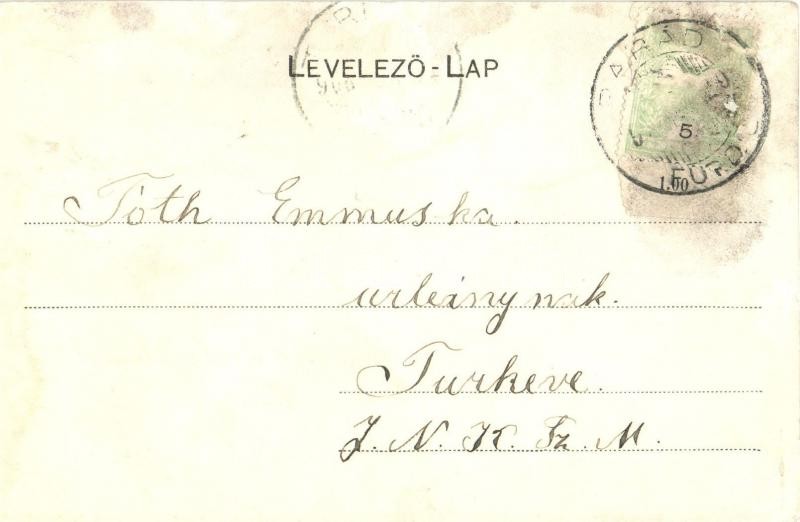 LEVELEZŐ-LAP
PARÁD
FÜRD
5
1.00
906
Tóth Emmuska.
urleánynak.
Turkeve.
J. N. K. Sz. M.